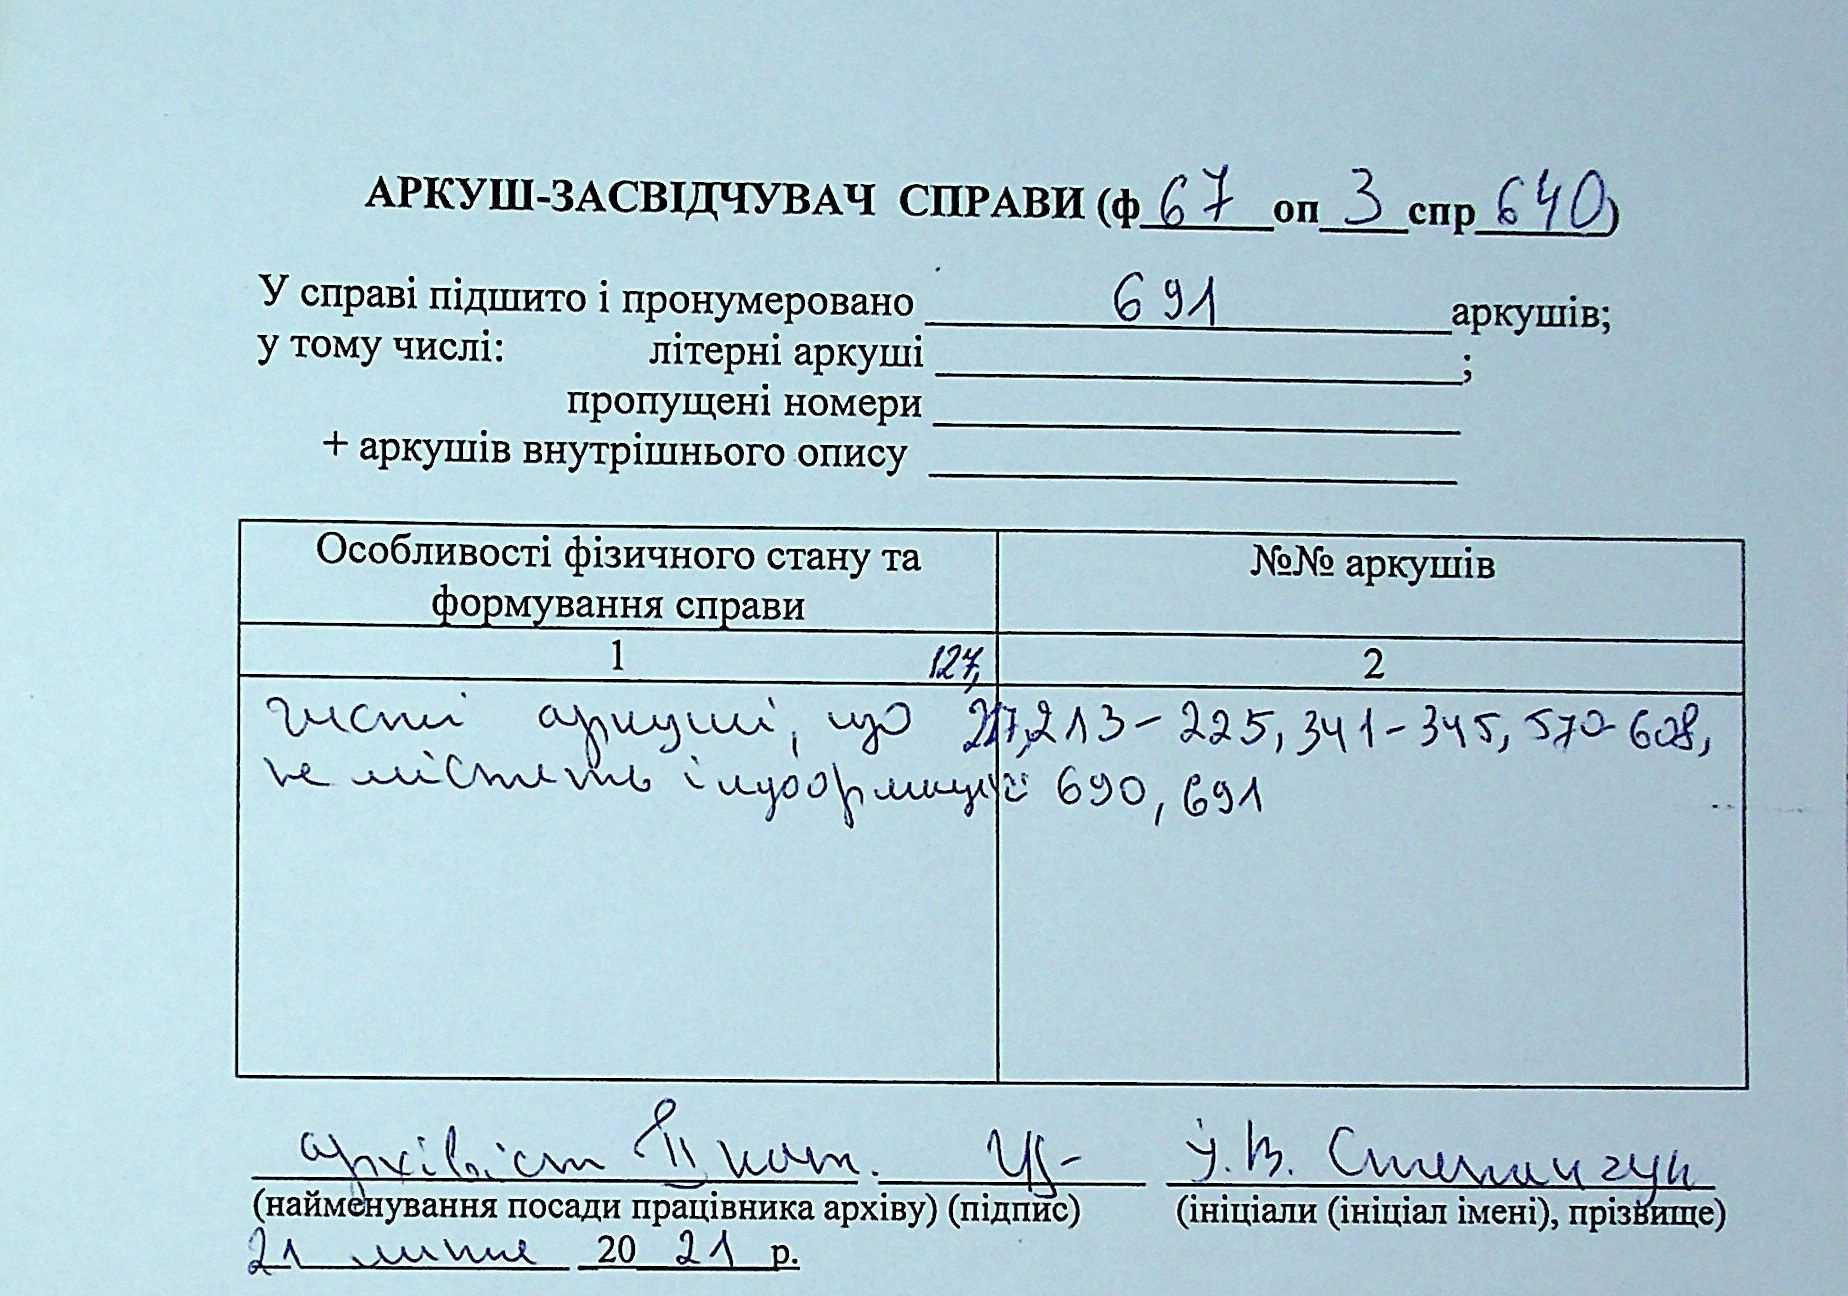 АРКУШ-ЗАСВІДЧУВАЧ СПРАВИ (ф 67 оп 3 спр 640)
У справі підшито і пронумеровано 691 аркушів;
у тому числі: літерні аркуші ;
пропущені номери
+ аркушів внутрішнього опису
Особливості фізичного стану та формування справи
№№ аркушів
1 127, 2
чисті аркуші, що 213-225, 341-345, 570-608,
не містять інформації 690, 691
архівіст II кат. Степанчук
(найменування посади працівника архіву) (підпис) (ініціали (ініціал імені), прізвище)
21 липня 2021 р.